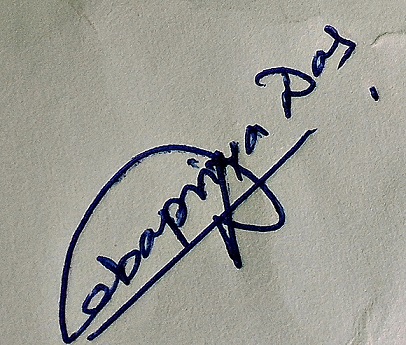 Debapriya Das